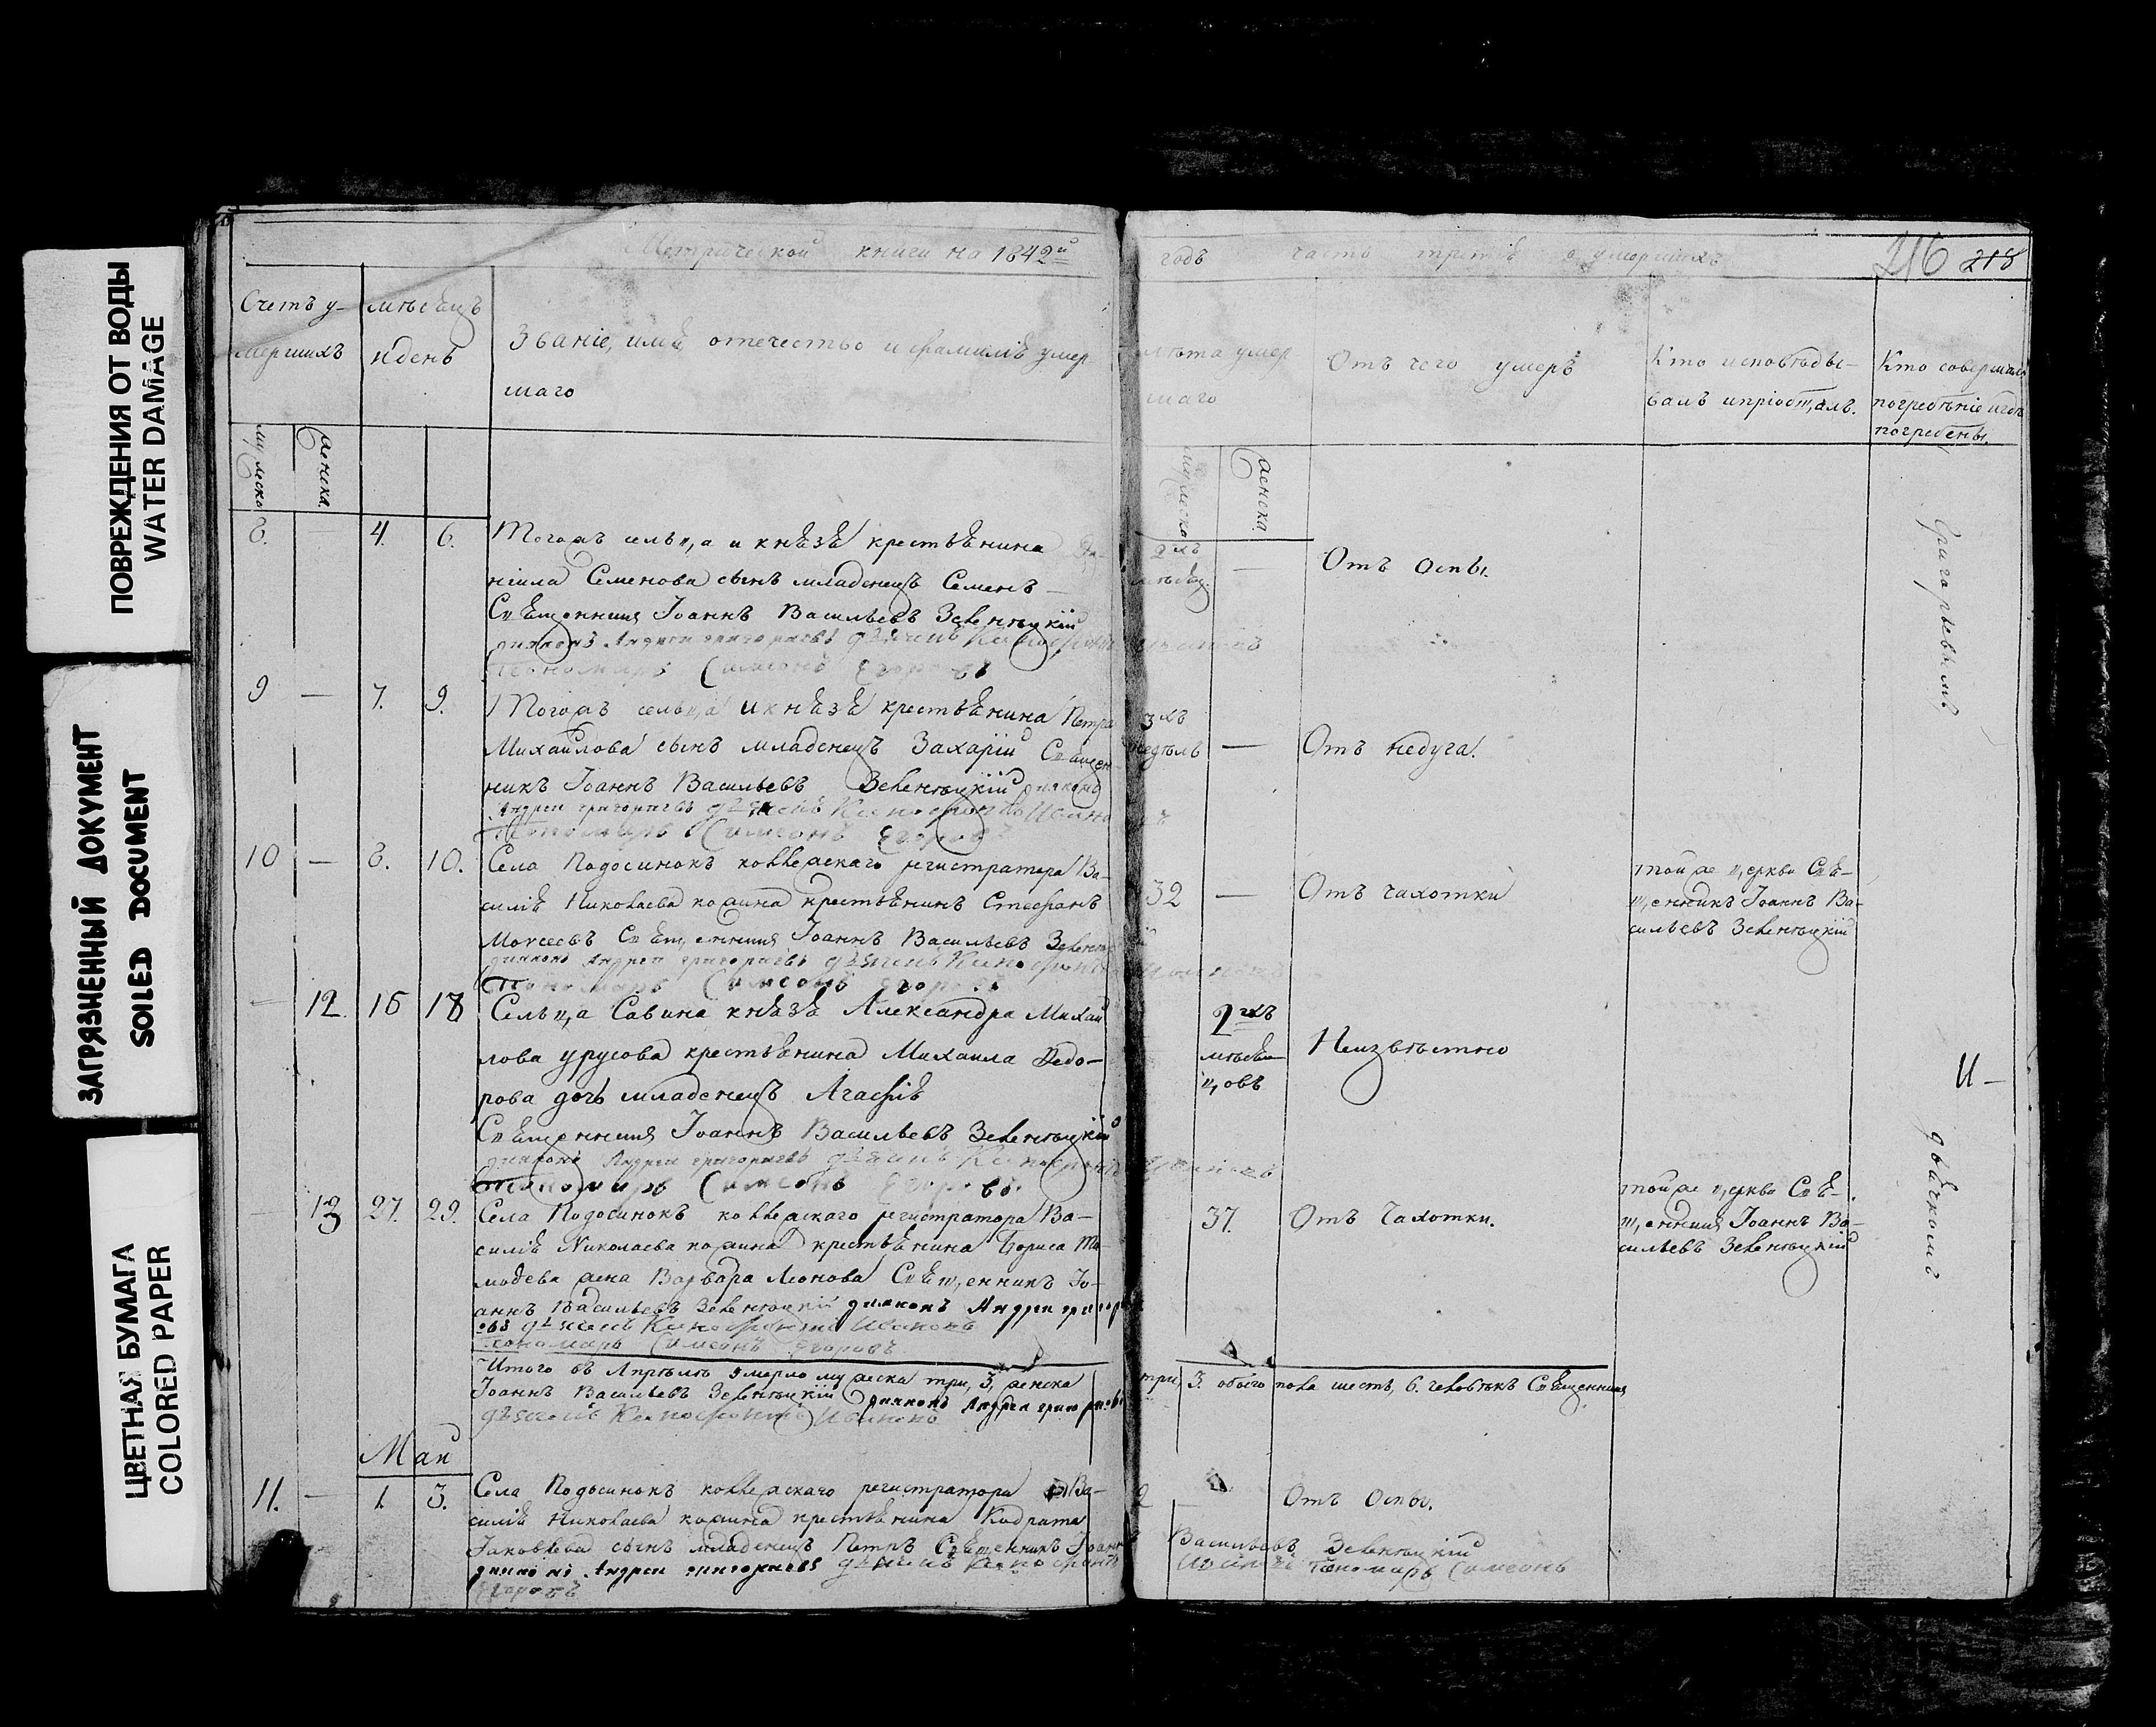 ПОВРЕЖДЕНИЯ ОТ ВОДЫ
WATER DAMAGE
ЗАГРЯЗНЕННЫЙ ДОКУМЕНТ
SOILED DOCUMENT
ЦВЕТНАЯ БУМАГА
COLORED PAPER
Метрической книги на 1842й
годъ часть третія о умершихъ
216 218
Счетъ у-
мершихъ
мѣсяцъ
и день
Званіе, имя, отечество и фамилія умер
шаго
лѣта умер-
шаго
Отъ чего умеръ
Кто исповѣды-
валъ и пріобщалъ.
Кто совершалъ
погребеніе и гдѣ
погребены.
мужеска
женска
мужеска
женска
8. — 4. 6. Тогожъ сельца и князя крестьянина Да-
ніила Семенова сынъ младенецъ Семенъ —
Священникъ Іоаннъ Васильевъ Зеленецкій
диаконъ Андрей григорьевъ дьячекъ Ксенофонтъ Ивановъ
Пономарь Симеонъ Егоровъ
2хъ
мѣсяц.
— Отъ Оспы.
9 — 7. 9. Тогожъ сельца и князя крестьянина Петра
Михайлова сынъ младенецъ Захарій Священ-
никъ Іоаннъ Васильевъ Зеленецкій диаконъ
Андрей григорьевъ дьячекъ Ксенофонтъ Ивановъ
Пономарь Симеонъ Егоровъ
3хъ
недѣль — Отъ недуга.
10 — 8. 10. Села Подосинокъ коллежскаго регистратора Ва-
силія Николаева кожина крестьянинъ Стефанъ
Моисеевъ Священникъ Іоаннъ Васильевъ Зеленецкій
диаконъ Андрей григорьевъ дьячекъ Ксенофонтъ Ивановъ
Пономарь Симеонъ Егоровъ
32 — Отъ чахотки
тойже церкви Свя-
щенникъ Іоаннъ Ва-
сильевъ Зеленецкій
— 12. 16 18 Сельца Савина князя Александра Михай
лова урусова крестьянина Михаила Федо-
рова дочь младенецъ Агафія
Священникъ Іоаннъ Васильевъ Зеленецкій
диаконъ Андрей григорьевъ дьячекъ Ксенофонтъ Ивановъ
Пономарь Симеонъ Егоровъ
2хъ
мѣся-
цовъ
Неизвѣстно
— 13 27. 29. Села Подосинокъ коллежскаго регистратора Ва-
силія Николаева кожина крестьянина Бориса Ти-
мофева жена Варвара Леонова Священникъ Іо-
аннъ Васильевъ Зеленецкій диаконъ Андрей григорь
евъ дьячекъ Ксенофонтъ Ивановъ
Пономарь Симеонъ Егоровъ
37. Отъ Чахотки.
тойже церкви Свя-
щенникъ Іоаннъ Ва-
сильевъ Зеленецкій
Итого въ Апрѣлѣ умерло мужеска три, 3, женска
три, 3. обоего пола шесть, 6. человѣкъ Священникъ
Іоаннъ Васильевъ Зеленецкій диаконъ Андрей григорьевъ
дьячекъ Ксенофонтъ Ивановъ
Май
11. — 1. 3. Села Подосинокъ коллежскаго регистратора Ва-
силія Николаева кожина крестьянина Кодрата
Іаковлева сынъ младенецъ Петръ Священникъ Іоаннъ
Васильевъ Зеленецкій
диаконъ Андрей григорьевъ дьячекъ Ксенофонтъ
Ивановъ Пономарь Симеонъ
Егоровъ
2 — Отъ Оспы.
Григорьевымъ
И —
дьячкомъ